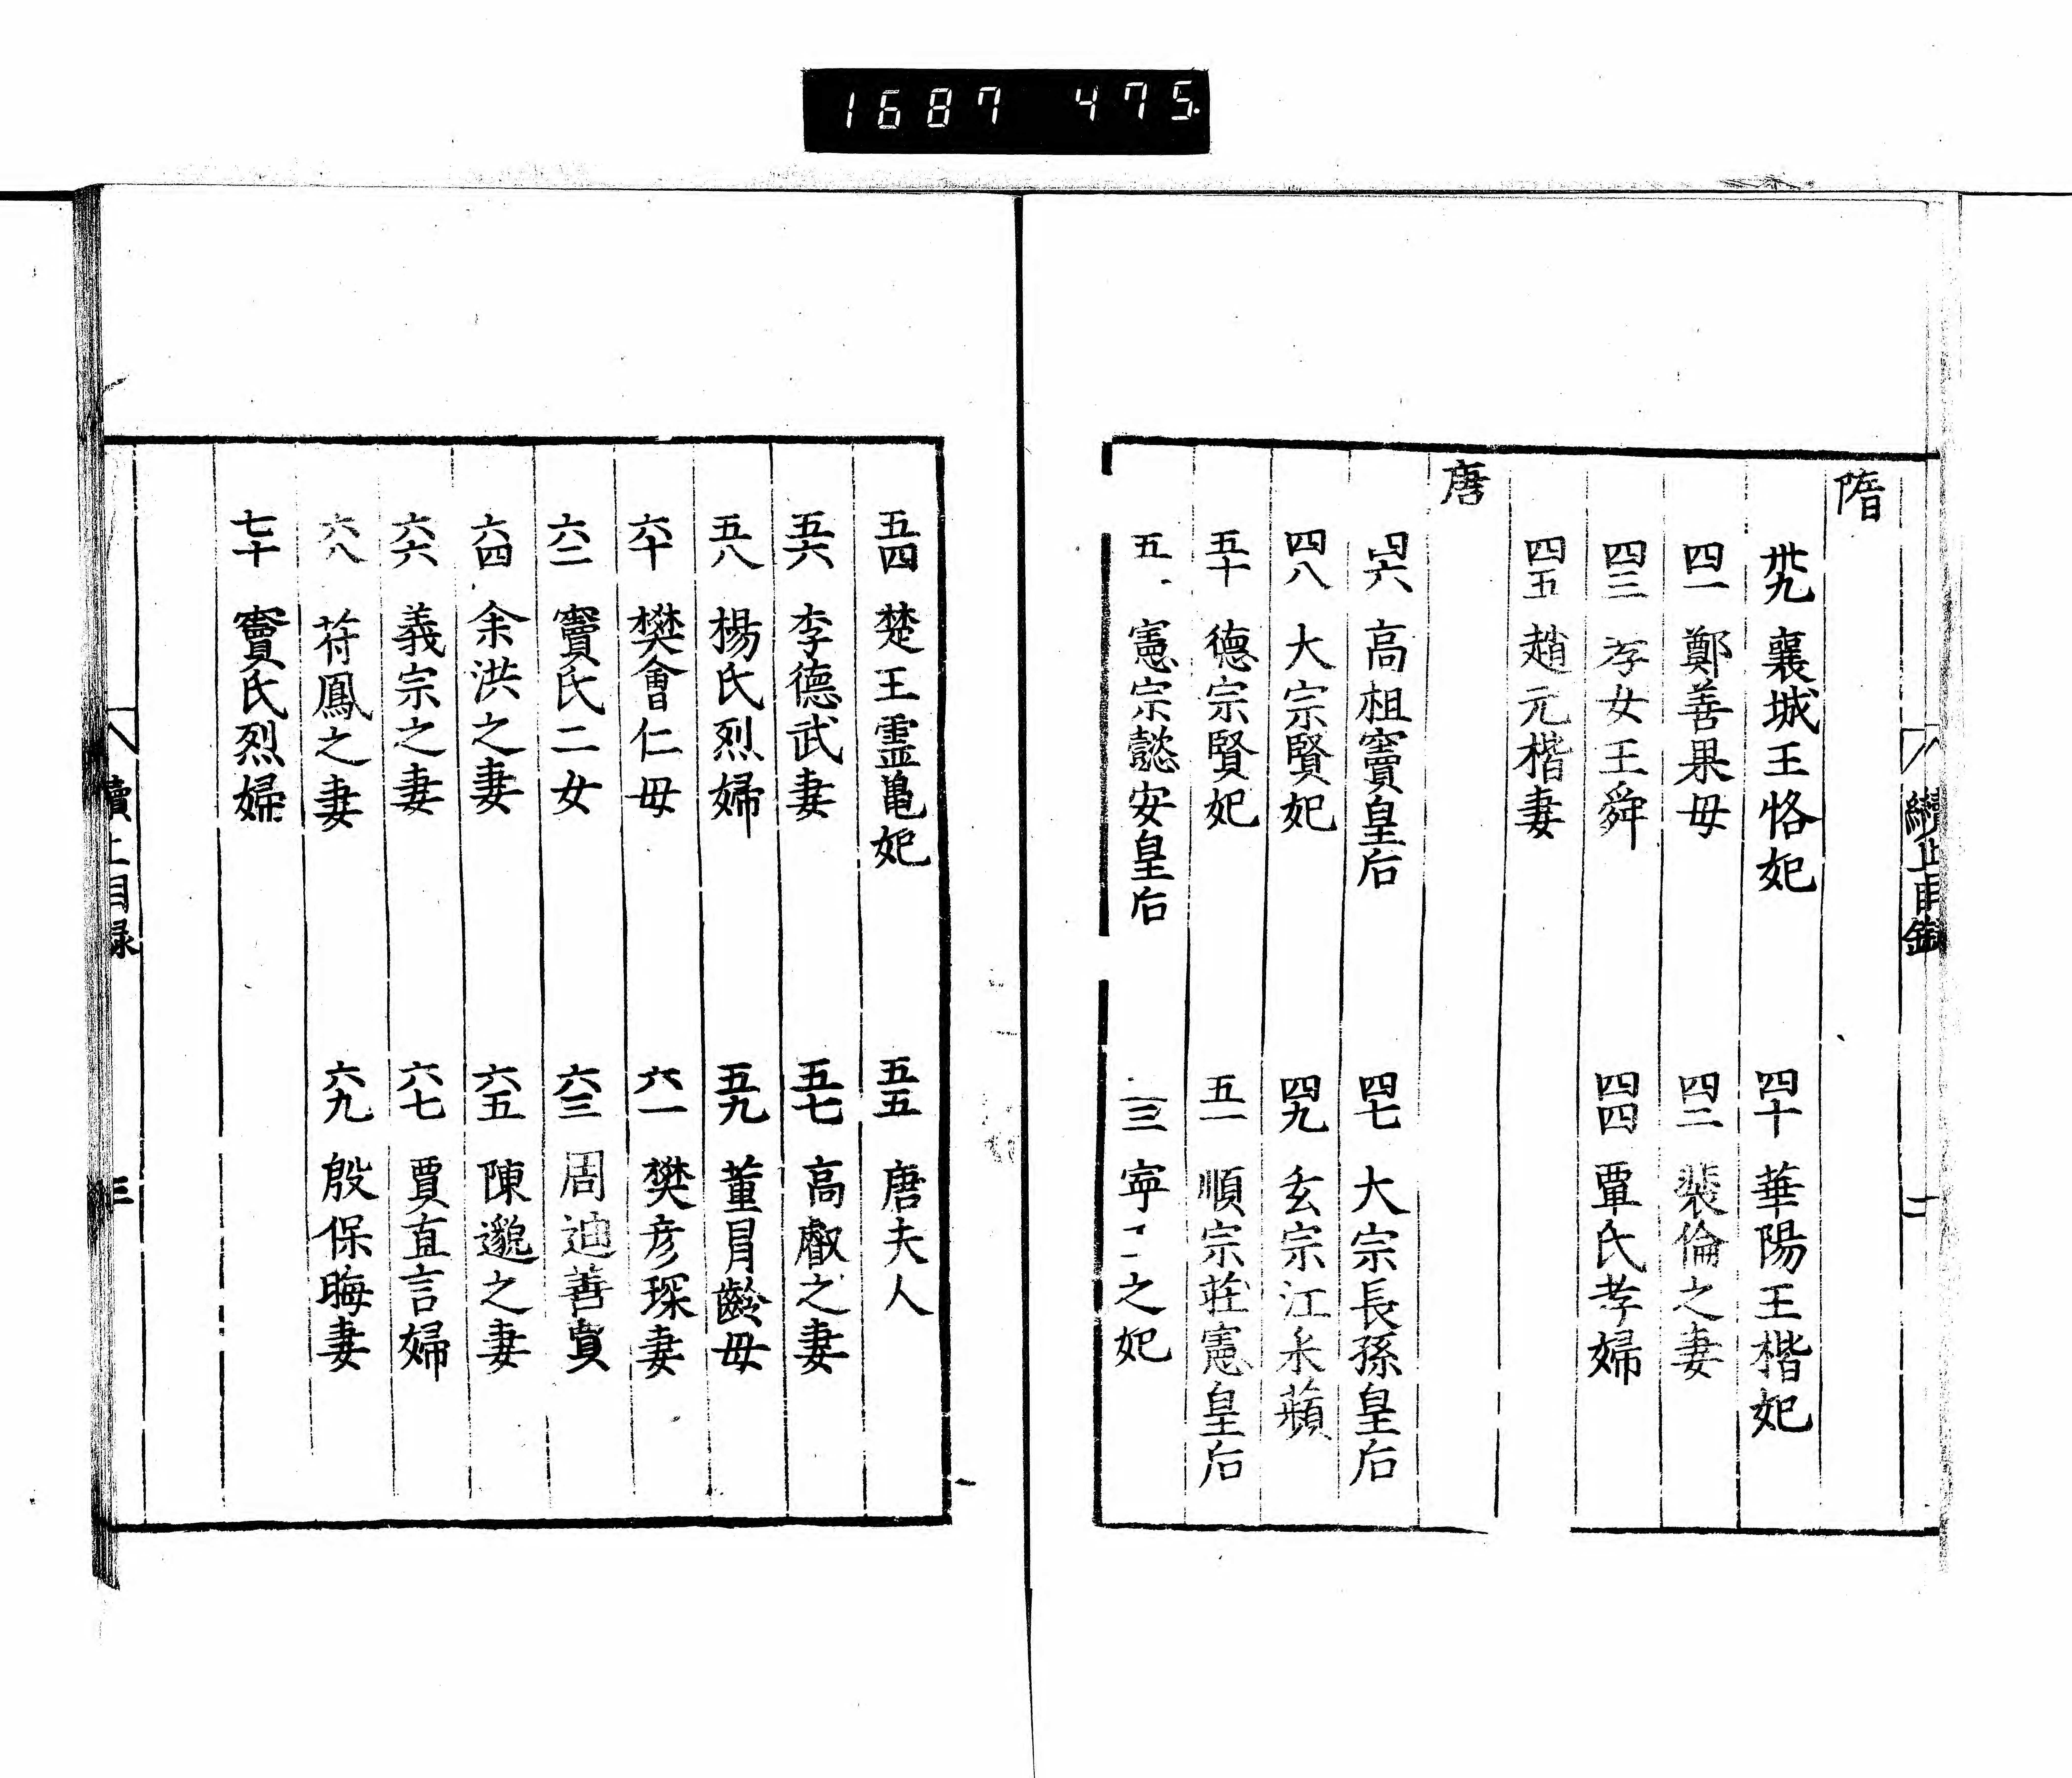 1687 475
隋
卅九 襄城王恪妃 四十 華陽王楷妃
四一 鄭善果母 四二 裴倫之妻
四三 孝女王舜 四四 覃氏孝婦
四五 趙元楷妻
唐
四六 高祖竇皇后 四七 大宗長孫皇后
四八 大宗賢妃 四九 玄宗江采蘋
五十 德宗賢妃 五一 順宗莊憲皇后
五 憲宗懿安皇后 三 寧之妃
五四 楚王霊亀妃 五五 唐夫人
五六 李德武妻 五七 高叡之妻
五八 楊氏烈婦 五九 董昌齡母
六十 樊會仁母 六一 樊彦琛妻
六二 竇氏二女 六三 周迪善賈
六四 余洪之妻 六五 陳邈之妻
六六 義宗之妻 六七 賈直言婦
六八 苻鳳之妻 六九 殷保晦妻
七十 竇氏烈婦
續上目録 三